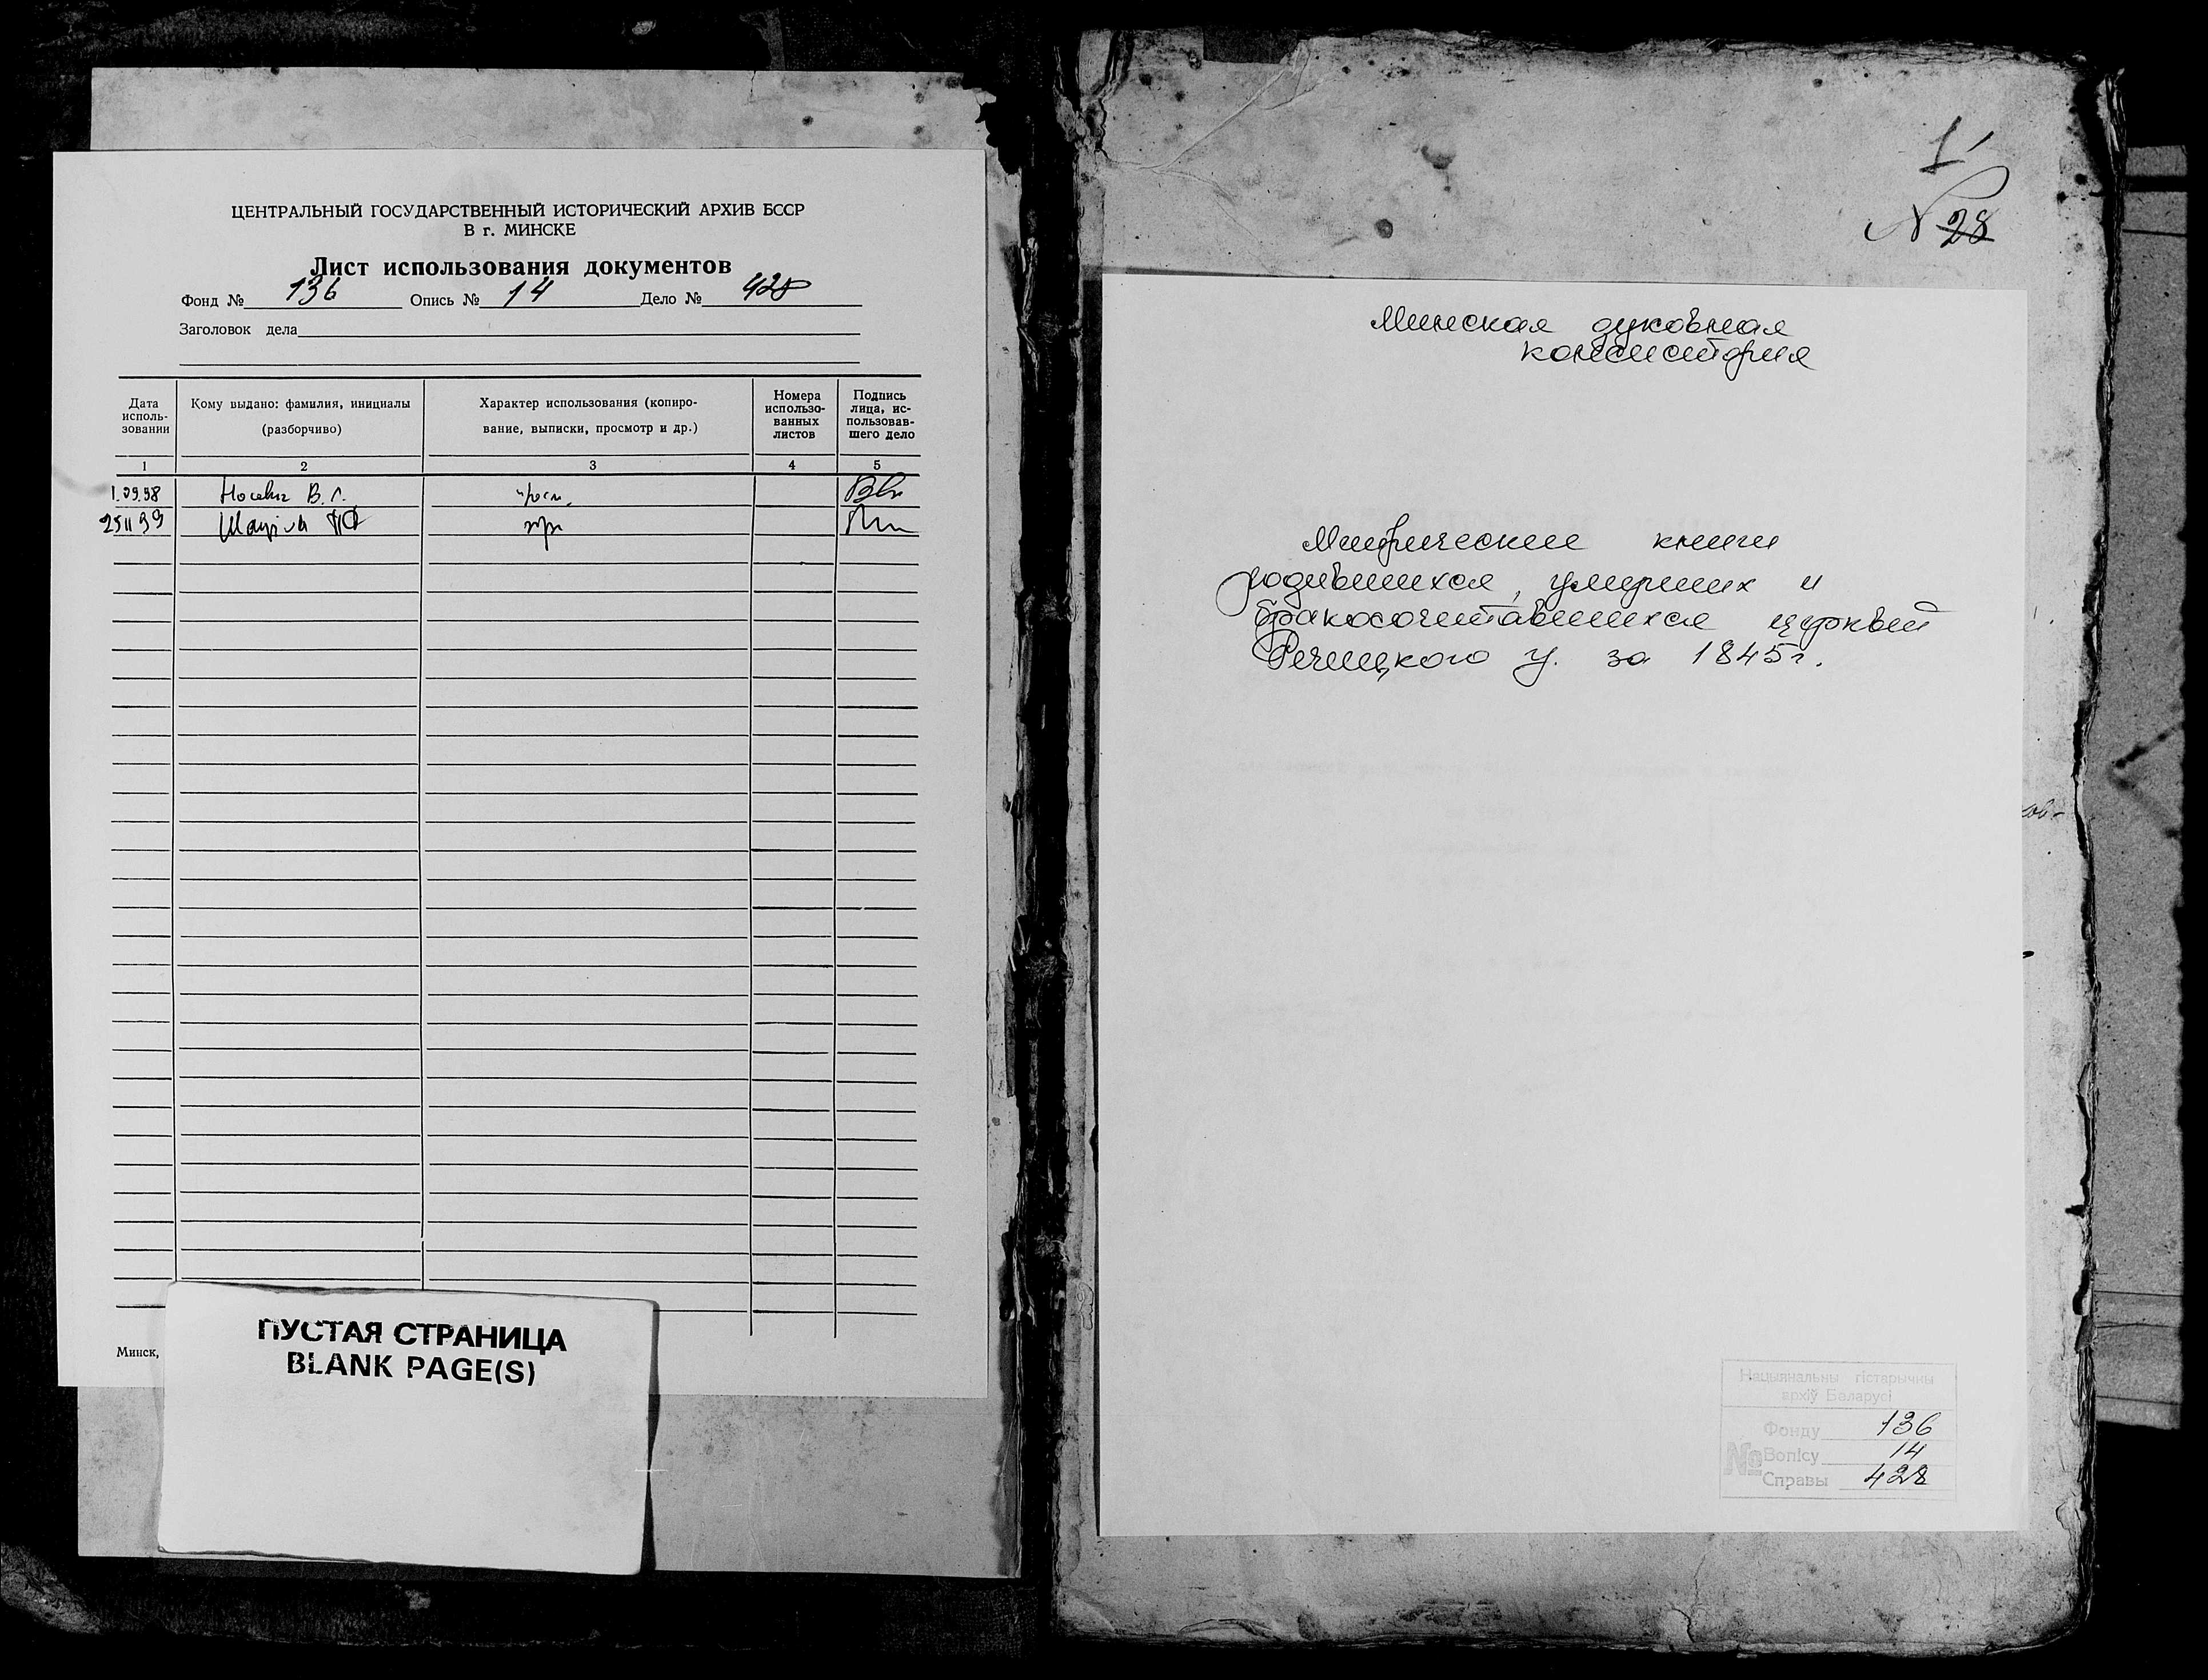 ЦЕНТРАЛЬНЫЙ ГОСУДАРСТВЕННЫЙ ИСТОРИЧЕСКИЙ АРХИВ БССР
В г. МИНСКЕ
Лист использования документов
Фонд № 136 Опись № 14 Дело № 428
Заголовок дела
Дата исполь-
зовании
Кому выдано: фамилия, инициалы
(разборчиво)
Характер использования (копиро-
вание, выписки, просмотр и др.)
Номера
использо-
ванных
листов
Подпись
лица, ис-
пользовав-
шего дело
1 2 3 4 5
1.09.98 Носевич В.Л.
25 11 99
Минск,
ПУСТАЯ СТРАНИЦА
BLANK PAGE(S)
1
N 28
Минская духовная
консистория
Метрические книги
родившихся, умерших и
бракосочетавшихся церквей
Речицкого у. за 1845г.
Нацыянальны гістарычны
архіў Беларусі
Фонду 136
№ Вопісу 14
Справы 428